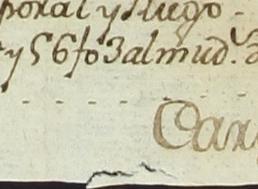 poral y Hugo
y 56 fo 3 almud.
Car